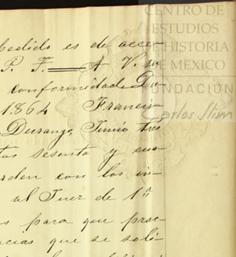 CENTRO DE
ESTUDIOS
DE HISTORIA
DE MEXICO
FUNDACIÓN
Carlos Slim
pedido es de acce-
P. F. A V. su
conformidad. Du-
1864 Francis-
Durango, Junio tres
tos sesenta y cua
rden con los in-
al Juez de 1ª
s para que prac-
cias que se soli-